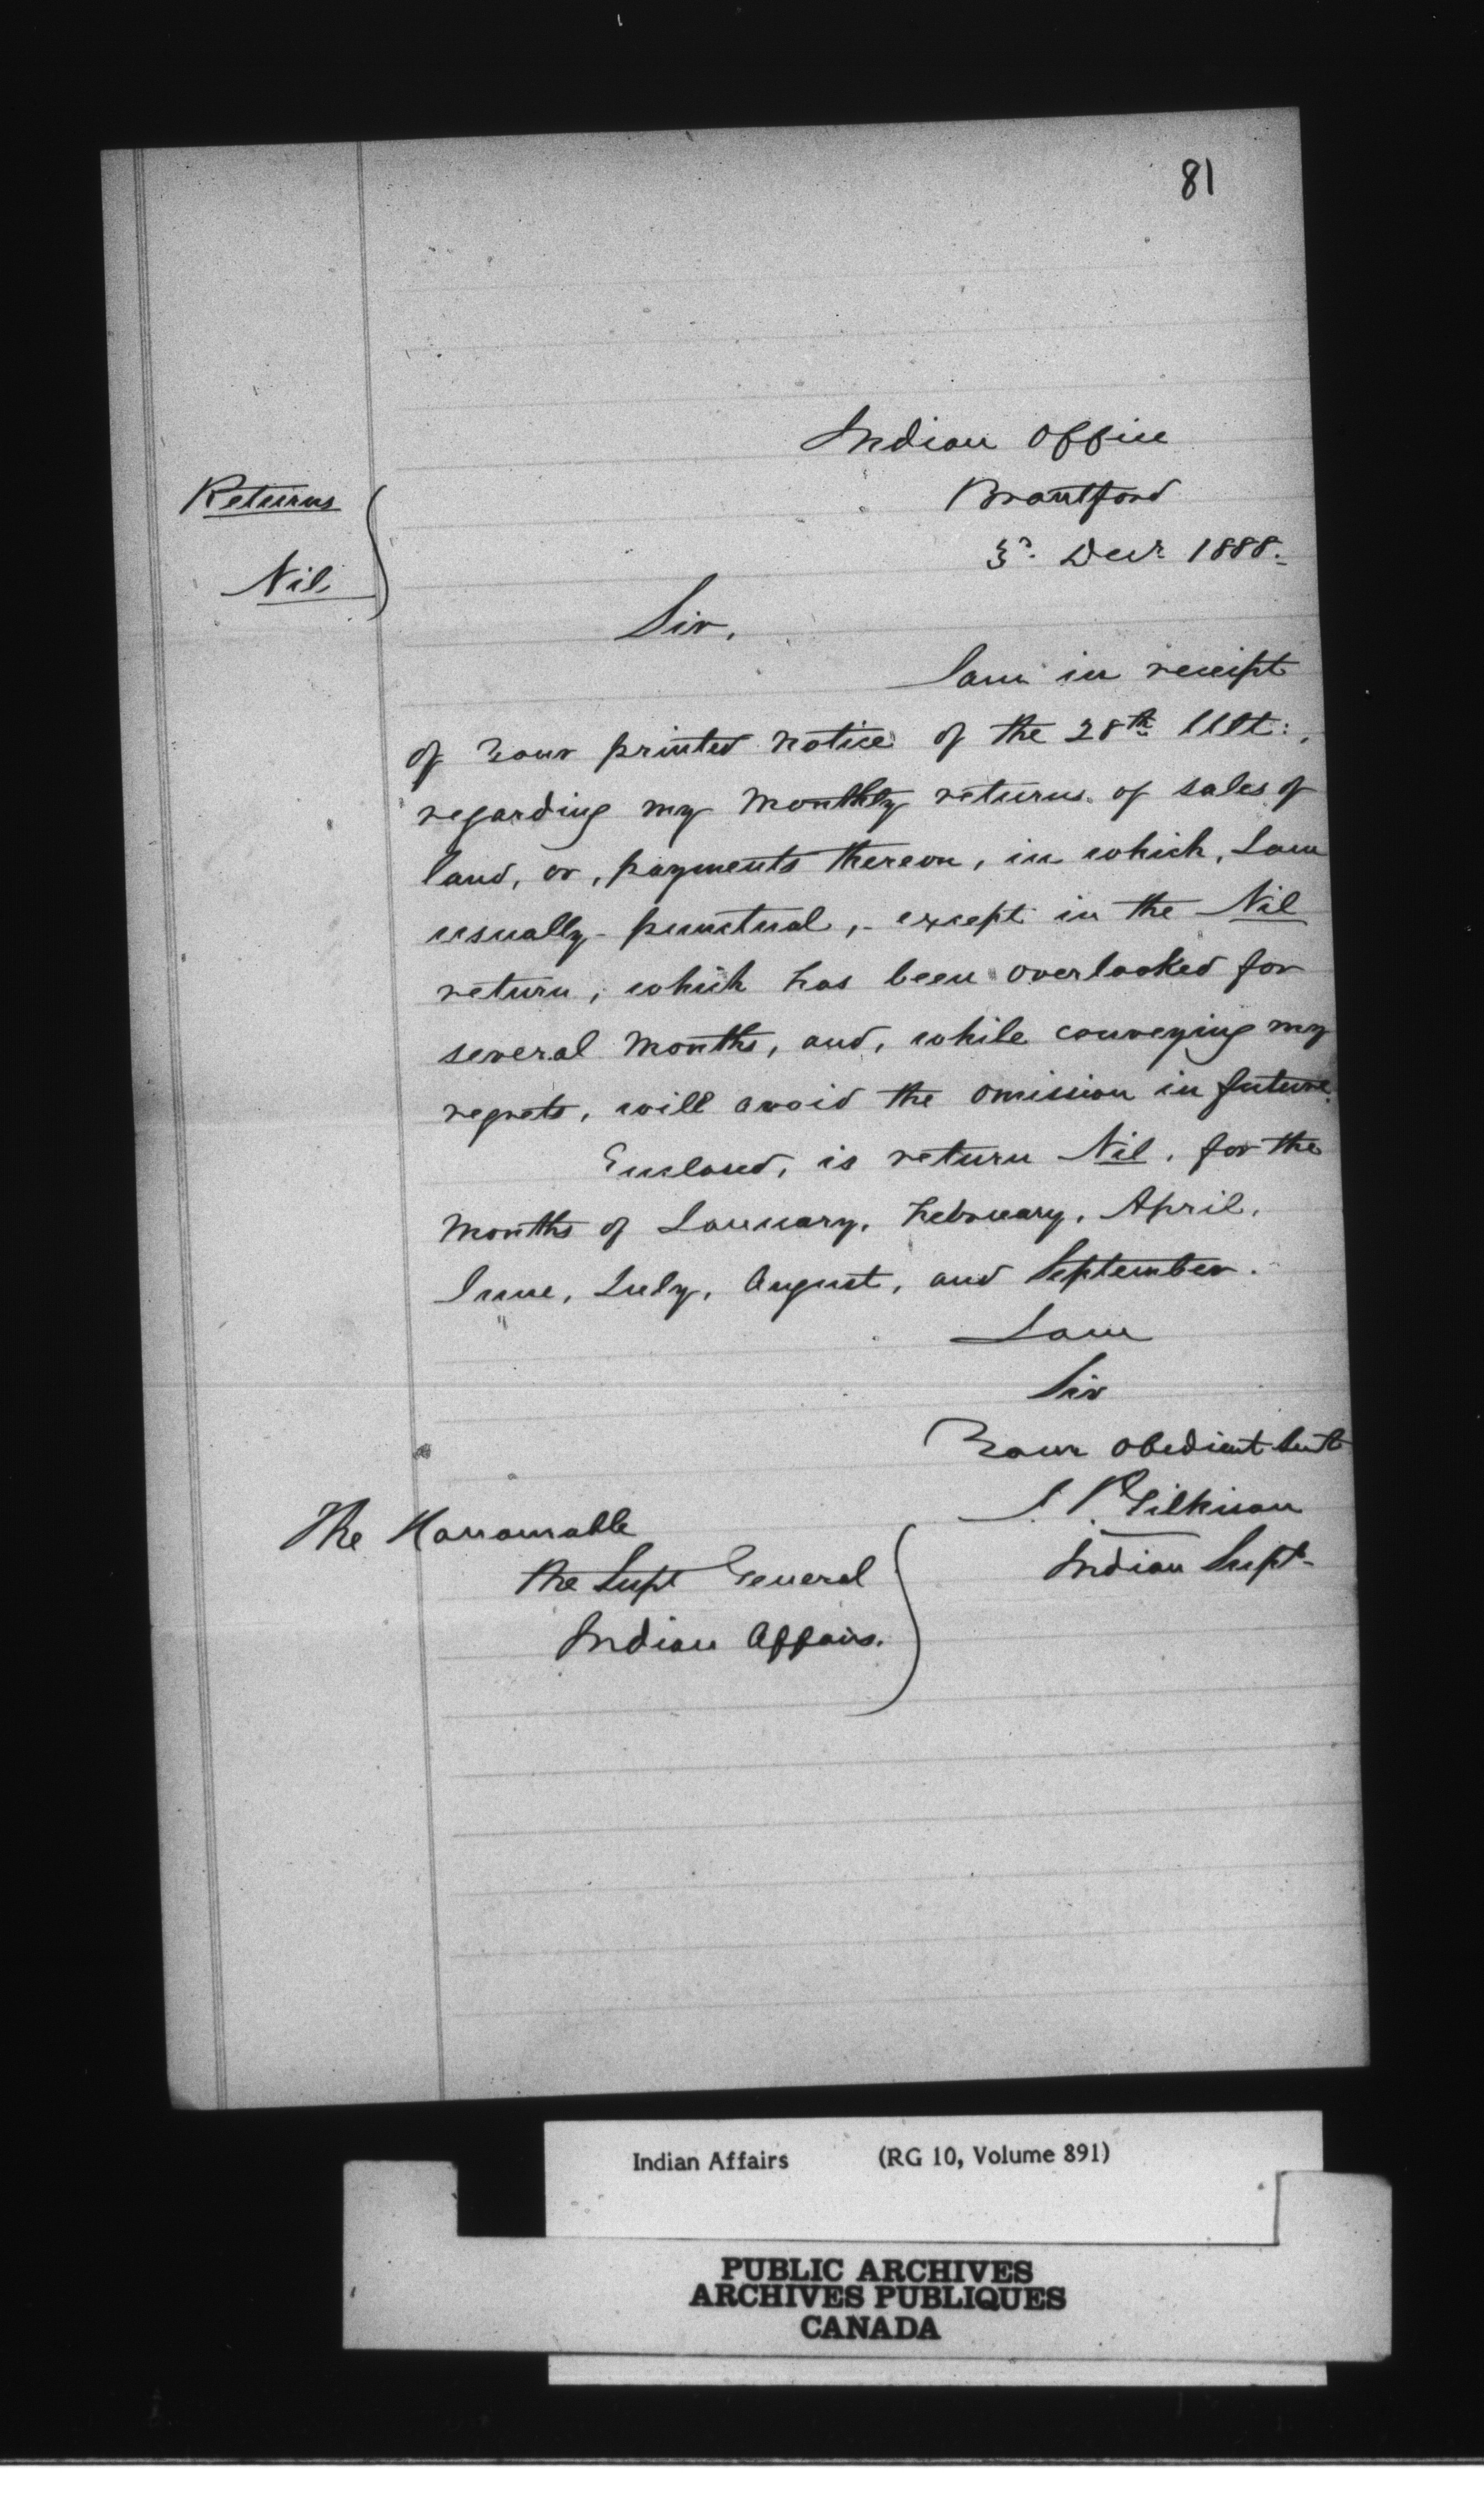 81
Indian Office
Brantford
3rd. Decr. 1888.
Returns
Nil
Sir,
I am in receipt
of Your printed notice of the 28th Ult:,
regarding my Monthly returns of sales of
land, or, payments thereon, in which, I am
usually punctual, - except in the Nil
return, which has been overlooked for
several Months, and, while conveying my
regrets, will avoid the omission in future.
Enclosed, is return Nil, for the
Months of January, February, April,
June, July, August, and September.
I am
Sir
Your obedient Sert
J. T. Gilkison
Indian Supt.
The Honourable
The Supt General
Indian Affairs.
Indian Affairs (RG 10, Volume 891)
PUBLIC ARCHIVES
ARCHIVES PUBLIQUES
CANADA